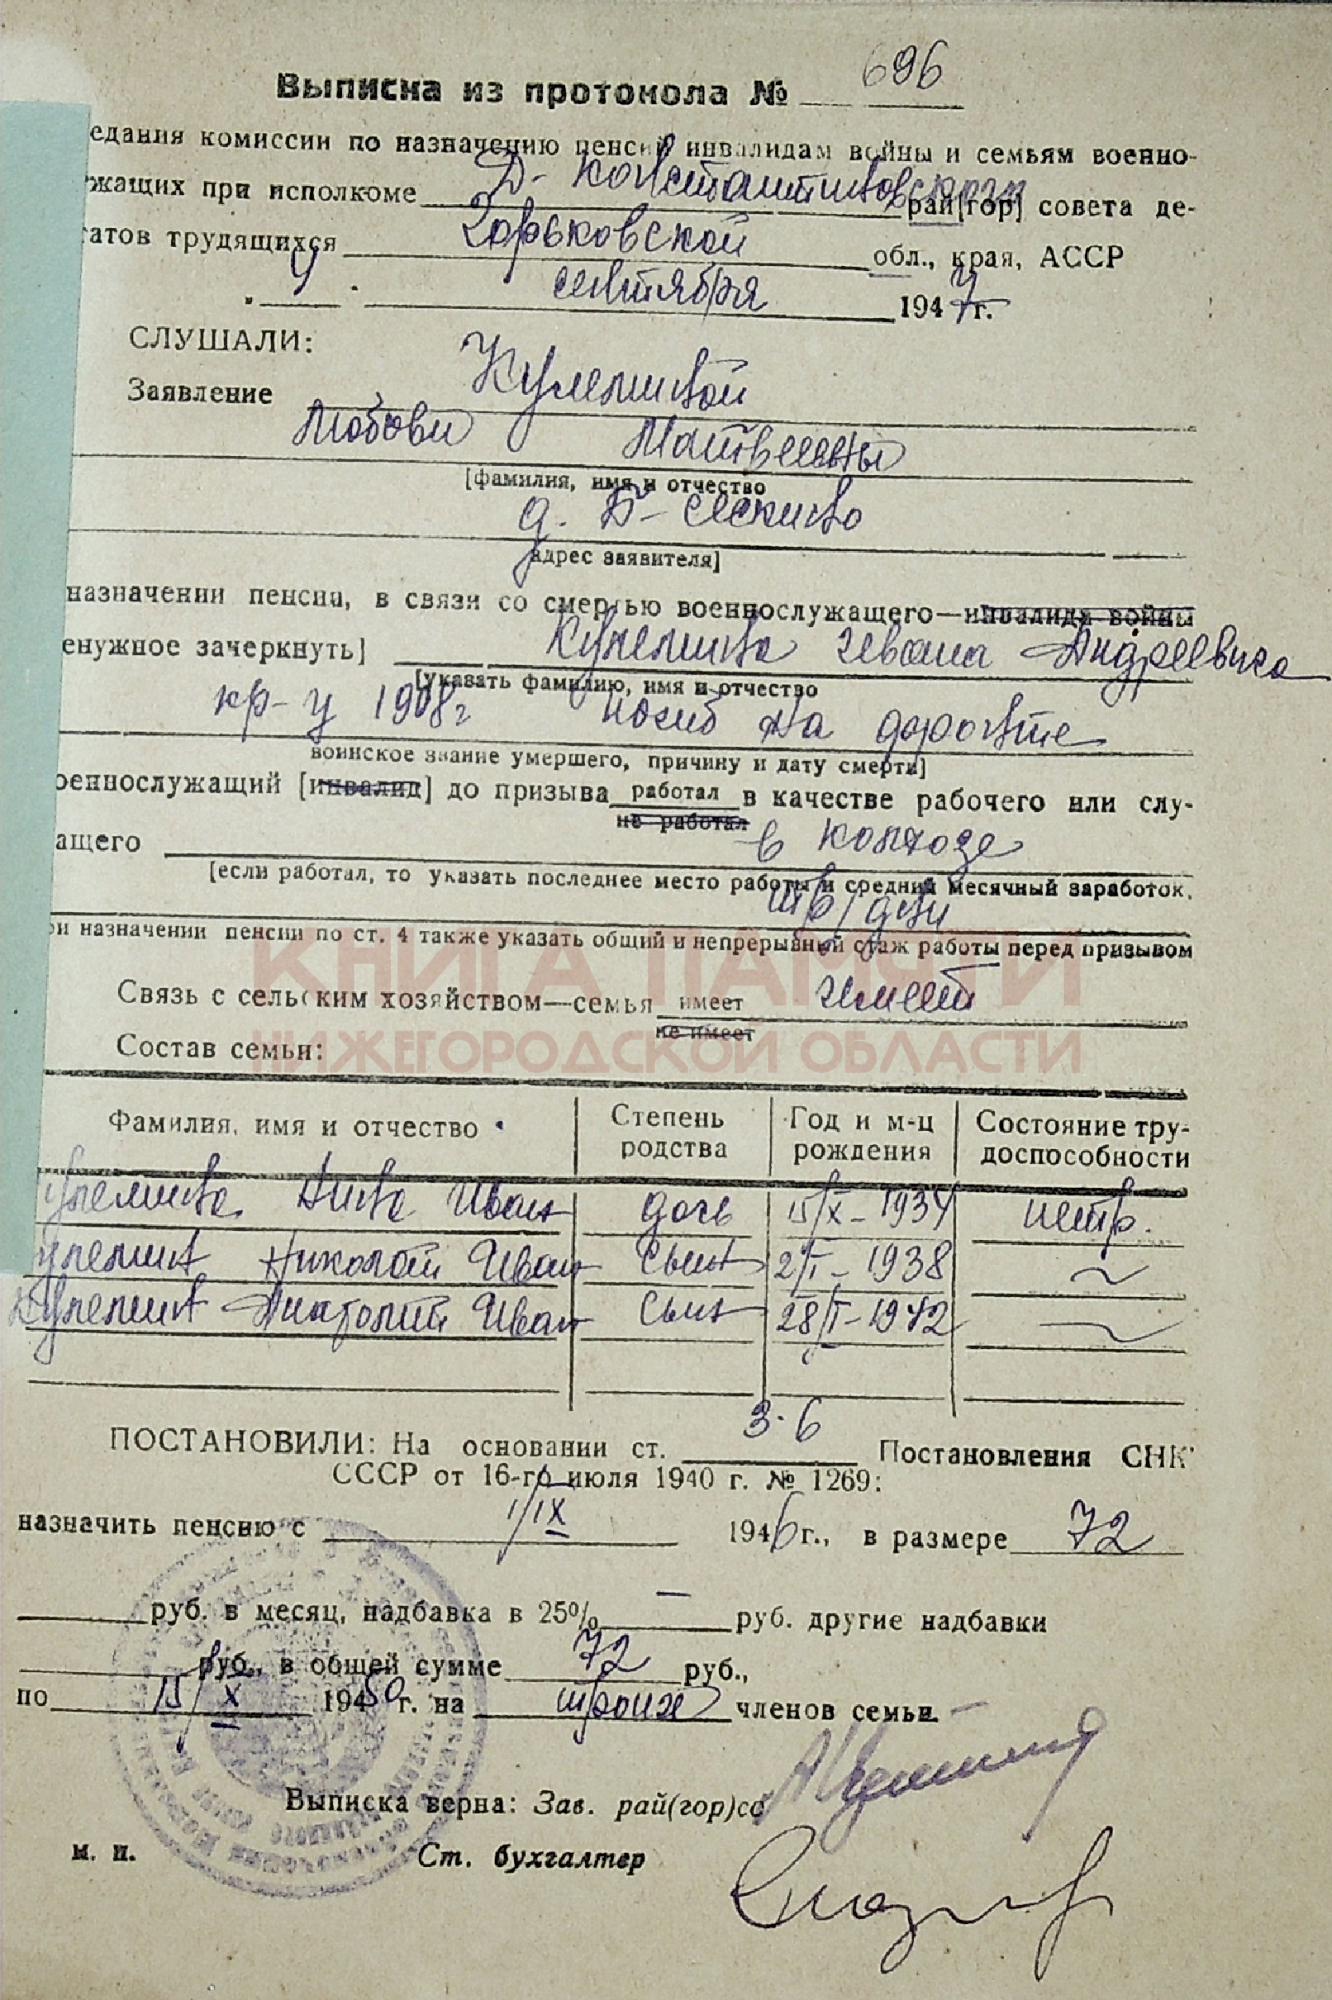 Выписка из протокола № 696
едания комиссии по назначению пенсий инвалидам войны и семьям военно-
жащих при исполкоме Д-Константиновского рай[гор] совета де-
татов трудящихся Горьковской обл., края, АССР
"4" сентября 1947 г.
СЛУШАЛИ:
Заявление Кулемивой
Любови Матвеевны
[фамилия, имя и отчество
д. Б-Сескино
адрес заявителя]
назначении пенсии, в связи со смертью военнослужащего—инвалида войны
енужное зачеркнуть] Кулемина Ивана Андреевича
[указать фамилию, имя и отчество
кр-ц 1908 г погиб на фронте
воинское звание умершего, причину и дату смерти]
оеннослужащий [инвалид] до призыва работал в качестве рабочего или слу-
не работал
ащего в колхозе
[если работал, то указать последнее место работы и средний месячный заработок.
тр/дни
ри назначении пенсии по ст. 4 также указать общий и непрерывный стаж работы перед призывом
КНИГА ПАМЯТИ
Связь с сельским хозяйством—семья имеет имеет
не имеет
НИЖЕГОРОДСКОЙ ОБЛАСТИ
Состав семьи:
Фамилия, имя и отчество Степень родства Год и м-ц рождения Состояние трудоспособности
улемина Нина Иван дочь 15/X-1934 нетр.
улемин Николай Иван сын 2/I-1938 ~
Кулемин Анатолий Иван сын 28/I-1942 ~
ПОСТАНОВИЛИ: На основании ст. 3-6 Постановления СНК
СССР от 16-го июля 1940 г. № 1269:
назначить пенсию с 1/IX 1946 г., в размере 72
руб. в месяц, надбавка в 25% — руб. другие надбавки
руб., в общей сумме 72 руб.,
по 15/X 19450 г. на троих членов семьи.
Выписка верна: Зав. рай(гор)со
м. п. Ст. бухгалтер